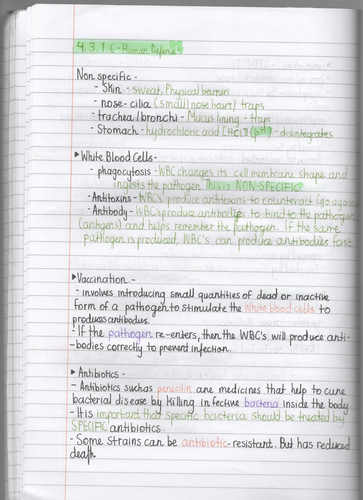 4.3.1.6 - Human Defence
Non specific -
- Skin - sweat, Physical barriers
- nose - cilia (small nose hairs) traps
- trachea/bronchi - Mucus lining - traps
- Stomach - hydrochloric acid [HCl] (pH) - disintegrates
▸ White Blood Cells -
- phagocytosis - WBC changes its cell membrane shape and
ingests the pathogen. This is NON-SPECIFIC
- Antitoxins - WBC's produce antitoxins to counteract (go against
- Antibody - WBC's produce antibodies to bind to the pathogen
(antigens) and helps remember the pathogen. If the same
pathogen is produced, WBC's can produce antibodies fast
▸ Vaccination -
- involves introducing small quantities of dead or inactive
form of a pathogen to stimulate the white blood cells to
produces antibodies.
! If the pathogen re-enters, then the WBC's will produce anti-
-bodies correctly to prevent infection.
▸ Antibiotics -
- Antibiotics such as penicilin are medicines that help to cure
bacterial disease by killing infective bacteria inside the body
- It is important that specific bacteria should be treated by
SPECIFIC antibiotics.
- Some strains can be antibiotic-resistant. But has reduced
death